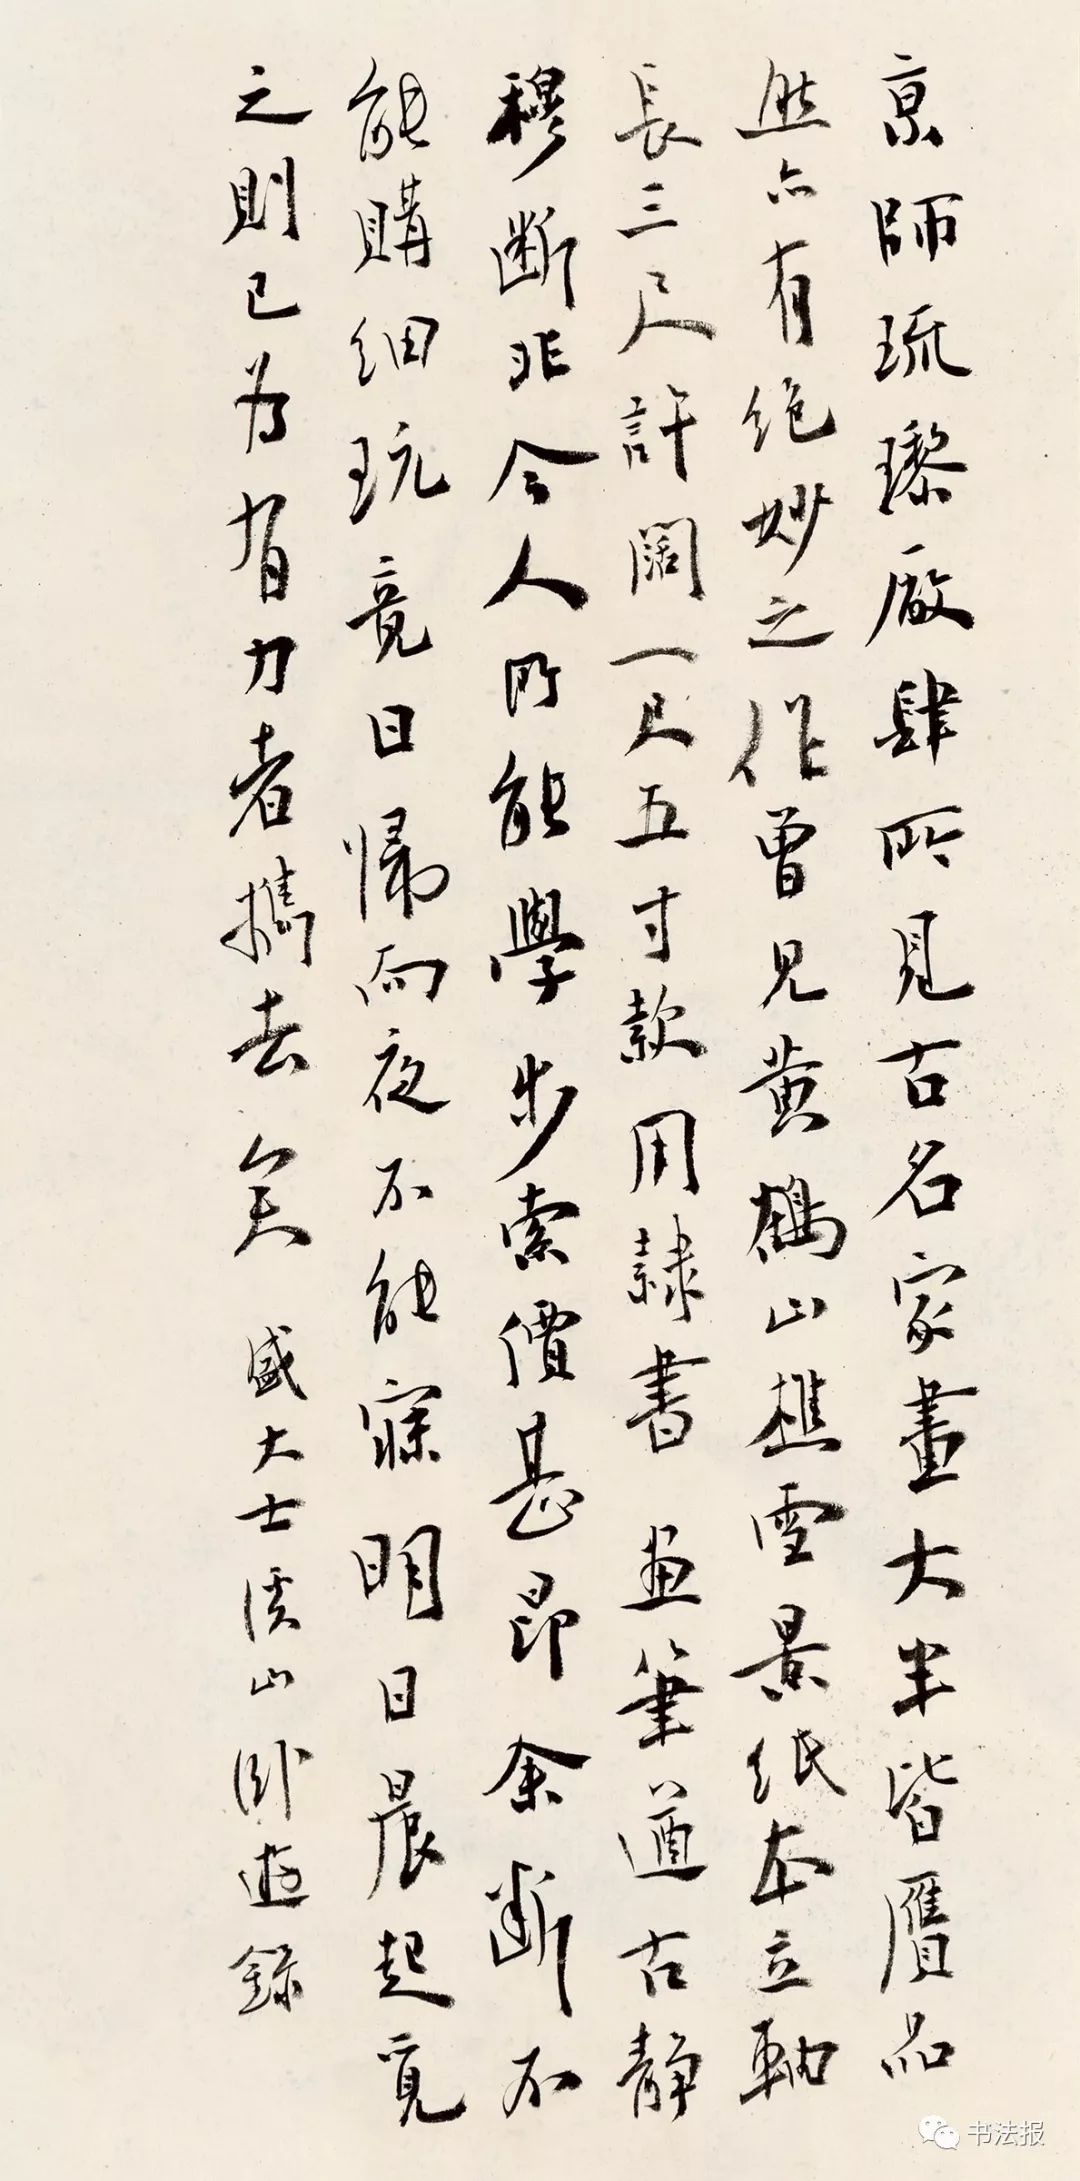 京師琉瓈厰肆所見古名家畫大半皆贋品
然亦有绝妙之作曾見黄鶴山樵雪景纸本立軸
長三尺許闊一尺五寸款用隷書画筆遒古静
穆断非今人所能學步索價甚昂余断不
能購细玩竟日歸而夜不能寐明日晨起覓
之則已为有力者攜去矣 盛大士溪山卧遊錄
书法报